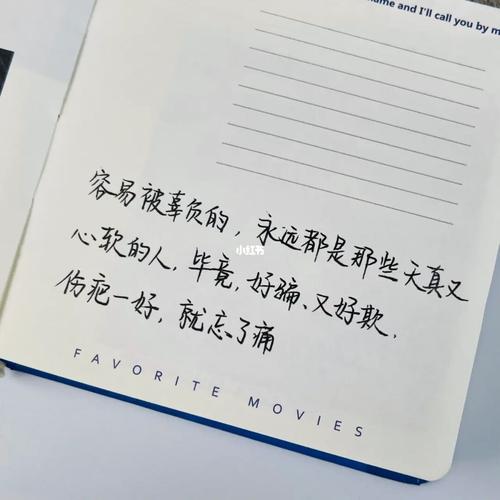 name and I'll call you by m
容易被辜负的，永远都是那些天真又
心软的人，毕竟，好骗、又好欺，
伤疤一好，就忘了痛
小红书
FAVORITE MOVIES